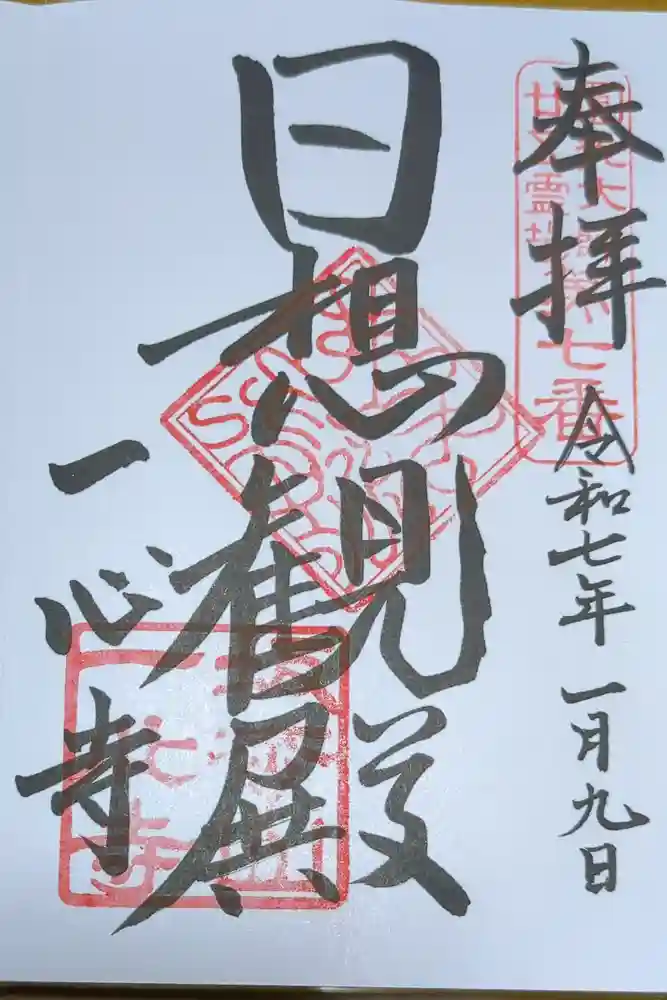 奉拝
令和七年一月九日
日想観殿
一心寺
第七番